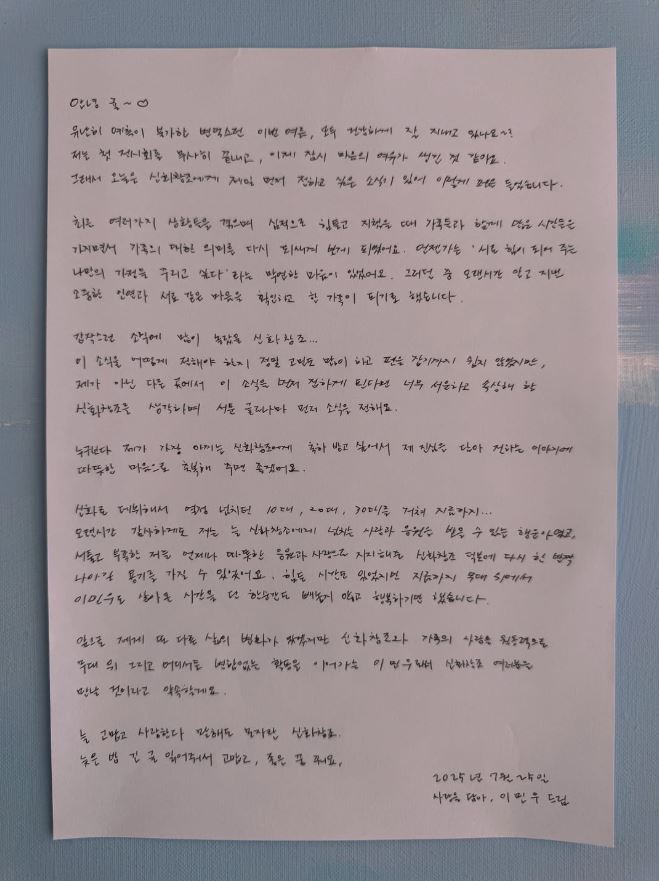 안녕 굿~♡
유난히 예측이 불가한 변덕스런 이번 여름, 모두 건강하게 잘 지내고 있나요~?
저는 첫 전시회를 무사히 끝내고, 이제 잠시 마음의 여유가 생긴 것 같아요.
그래서 오늘은 신화창조에게 제일 먼저 전하고 싶은 소식이 있어 이렇게 펜을 들었습니다.
최근 여러가지 상황들을 겪으며 심적으로 힘들고 지쳤을 때 가족들과 함께 많은 시간들을
가지면서 가족에 대한 의미를 다시 되새기 번게 되었어요. 언젠가는 '서로 힘이 되어 주는
나만의 가정을 꾸리고 싶다'라는 막연한 마음이 있었어요. 그러던 중 오랜시간 알고 지낸
소중한 인연과 서로 같은 마음을 확인하고 한 가족이 되기로 했습니다.
갑작스런 소식에 많이 놀랐을 신화창조...
이 소식을 어떻게 전해야 할지 정말 고민도 많이 하고 펜을 잡기까지 쉽지 않았지만,
제가 아닌 다른 곳에서 이 소식을 먼저 전하게 된다면 너무 서운하고 속상해 할
신화창조를 생각하며 서툰 글로나마 먼저 소식을 전해요.
누구보다 제가 가장 아끼는 신화창조에게 축하 받고 싶어서 제 진심을 담아 전하는 이야기에
따뜻한 마음으로 축복해 주면 좋겠어요.
신화로 데뷔해서 열정 넘치던 10대, 20대, 30대를 거쳐 지금까지...
오랜시간 감사하게도 저는 늘 신화창조에게 넘치는 사랑과 응원을 받을 수 있는 행운아였고,
서툴고 부족한 저를 언제나 따뜻한 응원과 사랑으로 지지해준 신화창조 덕분에 다시 한 발짝
나아갈 용기를 가질 수 있었어요. 힘든 시간도 있었지만 지금까지 무대 위에서
이민우로 살아온 시간을 단 한순간도 빼놓지 않고 행복하기만 했습니다.
앞으로 제게 또 다른 삶의 변화가 있겠지만 신화창조와 가족의 사랑을 원동력으로
무대 위 그리고 어디서든 변함없는 활동을 이어가는 이민우로서 신화창조 여러분을
만날 것이라고 약속할게요.
늘 고맙고 사랑한다 말해도 모자란 신화창조.
늦은 밤 긴 글 읽어주셔서 고맙고, 좋은 꿈 꿔요.
2025년 7월 25일
사랑을 담아, 이민우 드림